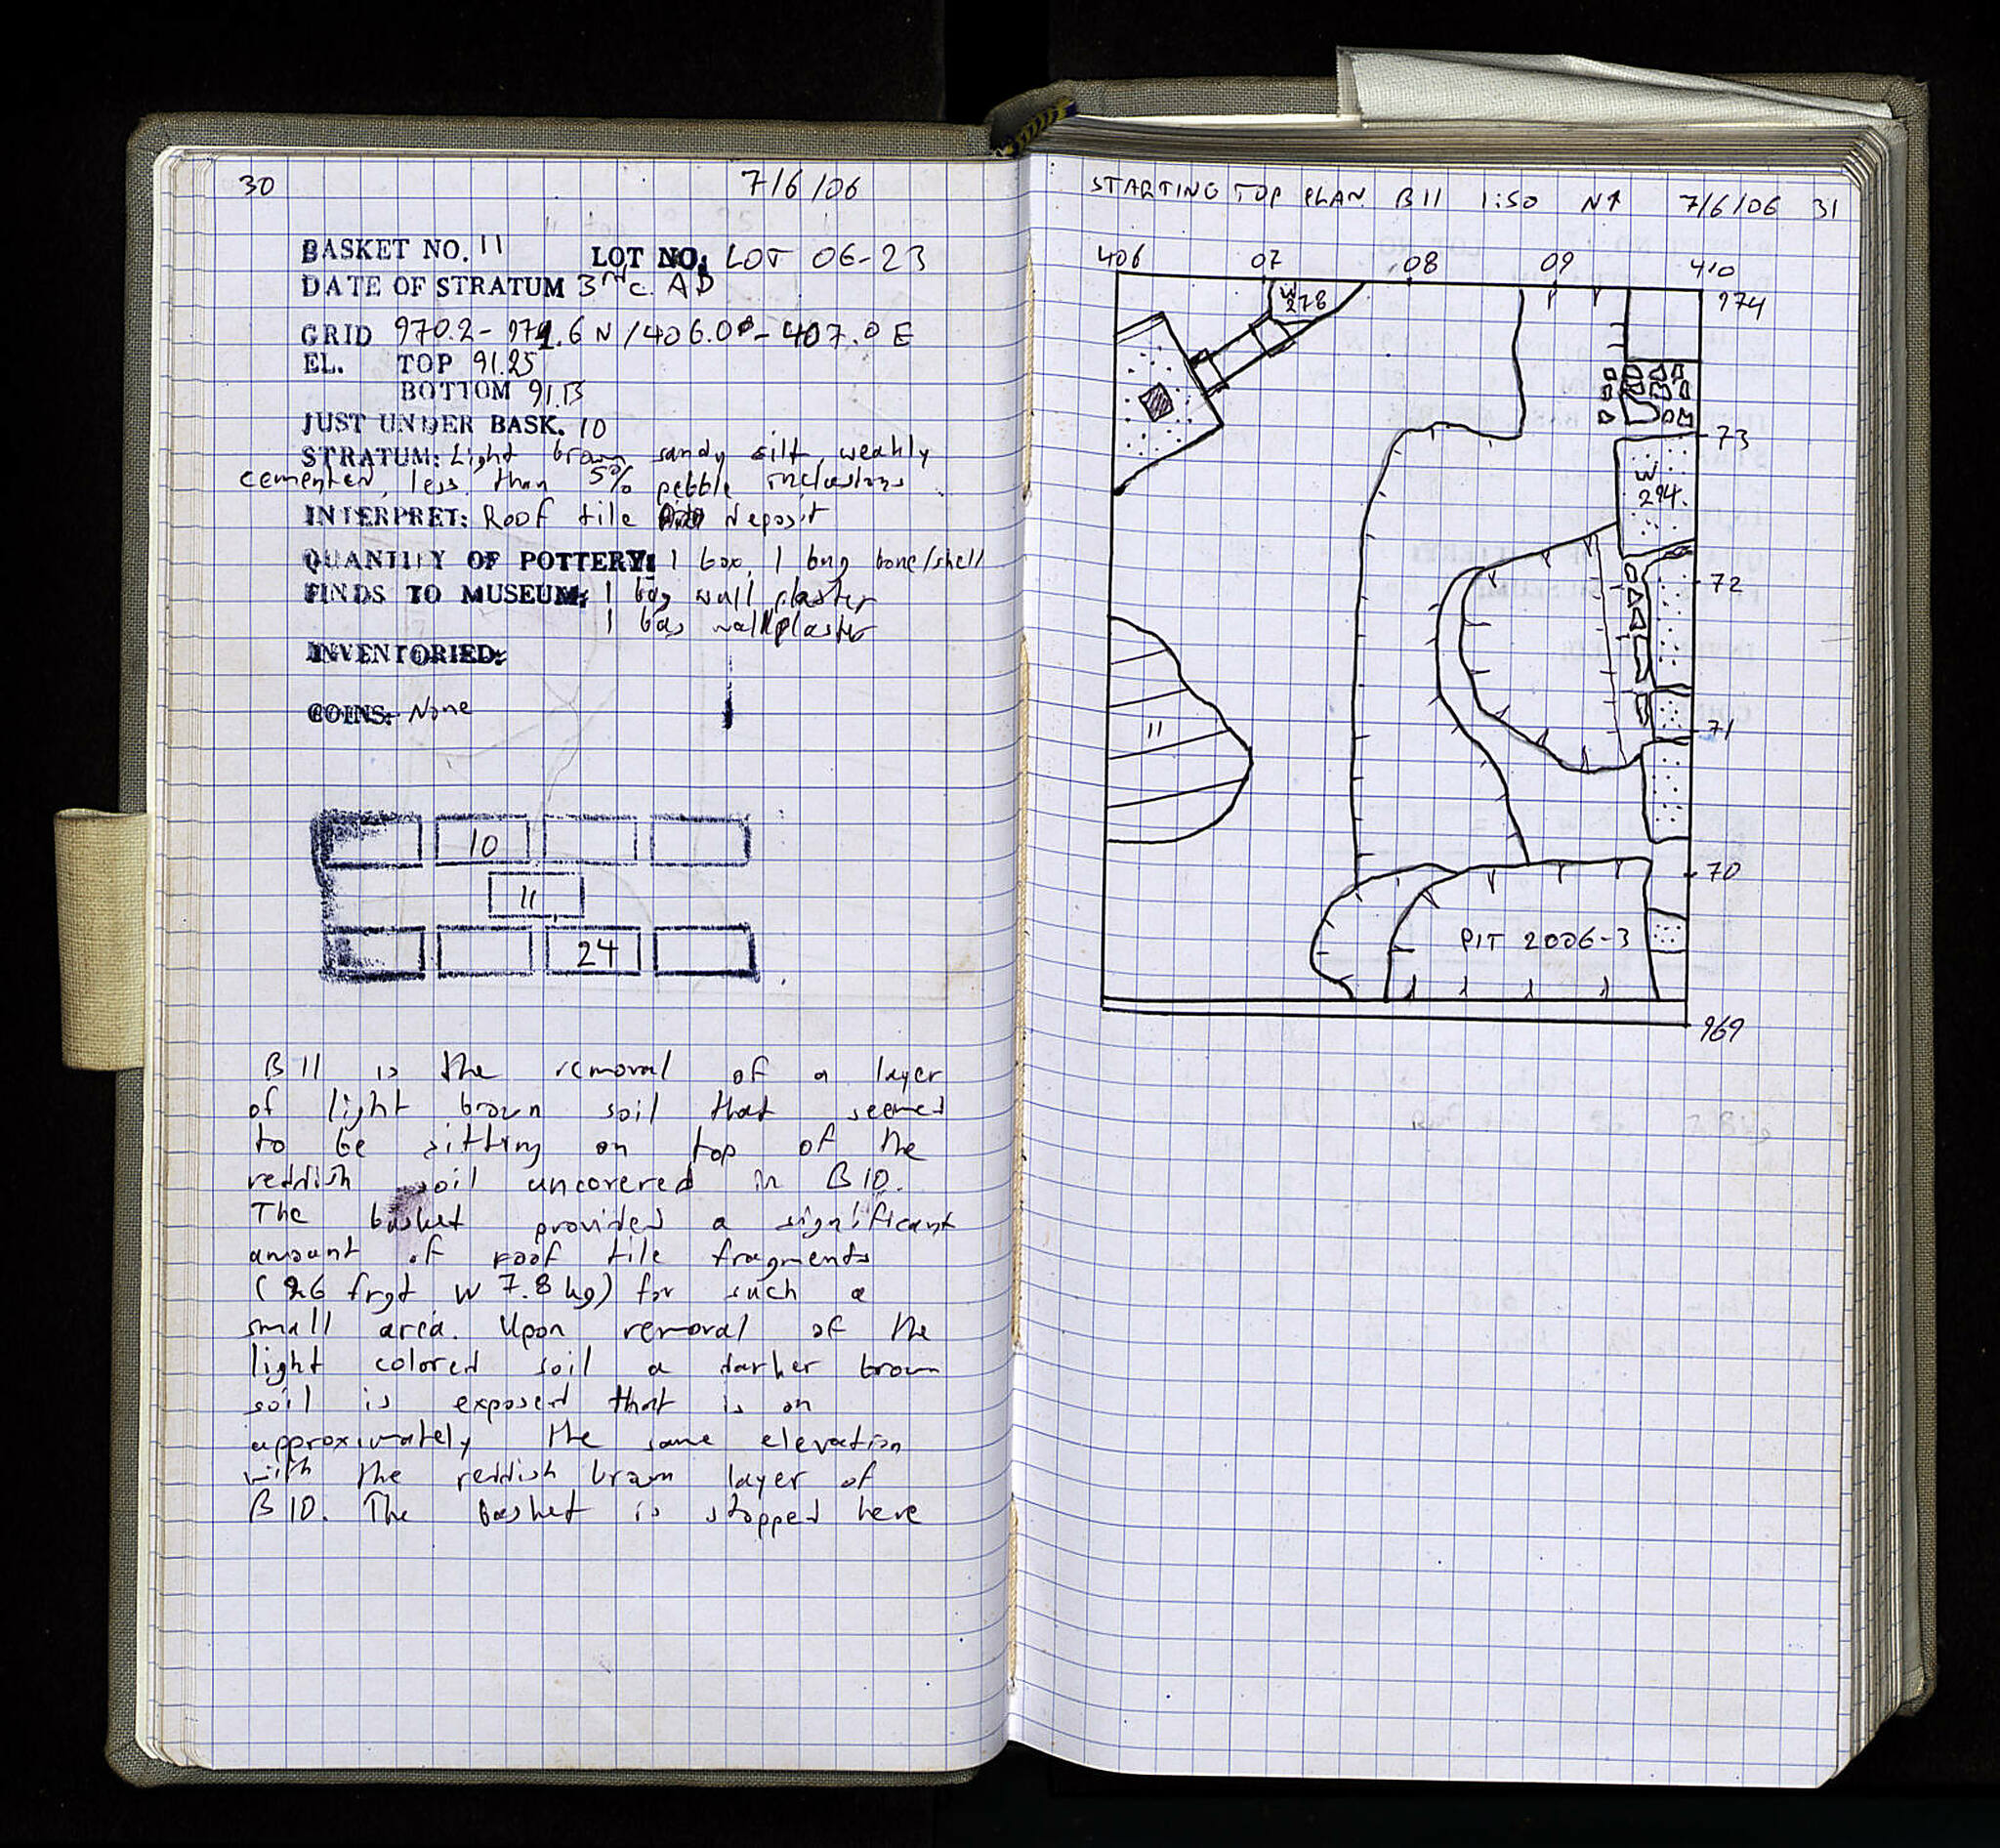 30 7/6/06
BASKET NO. 11 LOT NO: LOT 06-23
DATE OF STRATUM 3rd c. AD
GRID 970.2 - 971.6 N / 406.0 - 407.0 E
EL. TOP 91.25
BOTTOM 91.13
JUST UNDER BASK. 10
STRATUM: Light brown sandy silt, weakly
cemented, less than 5% pebble inclusions
INTERPRET: Roof tile deposit
QUANTITY OF POTTERY: 1 box, 1 bag bone/shell
FINDS TO MUSEUM: 1 bag wall plaster
1 bag wall plaster
INVENTORIED:
COINS: None
10
11
24
B 11 is the removal of a layer
of light brown soil that seemed
to be sitting on top of the
reddish soil uncovered in B 10.
The basket provided a significant
amount of roof tile fragments
(26 frgt w 7.8 kg) for such a
small area. Upon removal of the
light colored soil a darker brown
soil is exposed that is on
approximately the same elevation
with the reddish brown layer of
B 10. The basket is stopped here
STARTING TOP PLAN B 11 1:50 N↑ 7/6/06 31
406 07 08 09 410
974
W
278
73
W
294.
72
11
71
70
PIT 2006-3
969